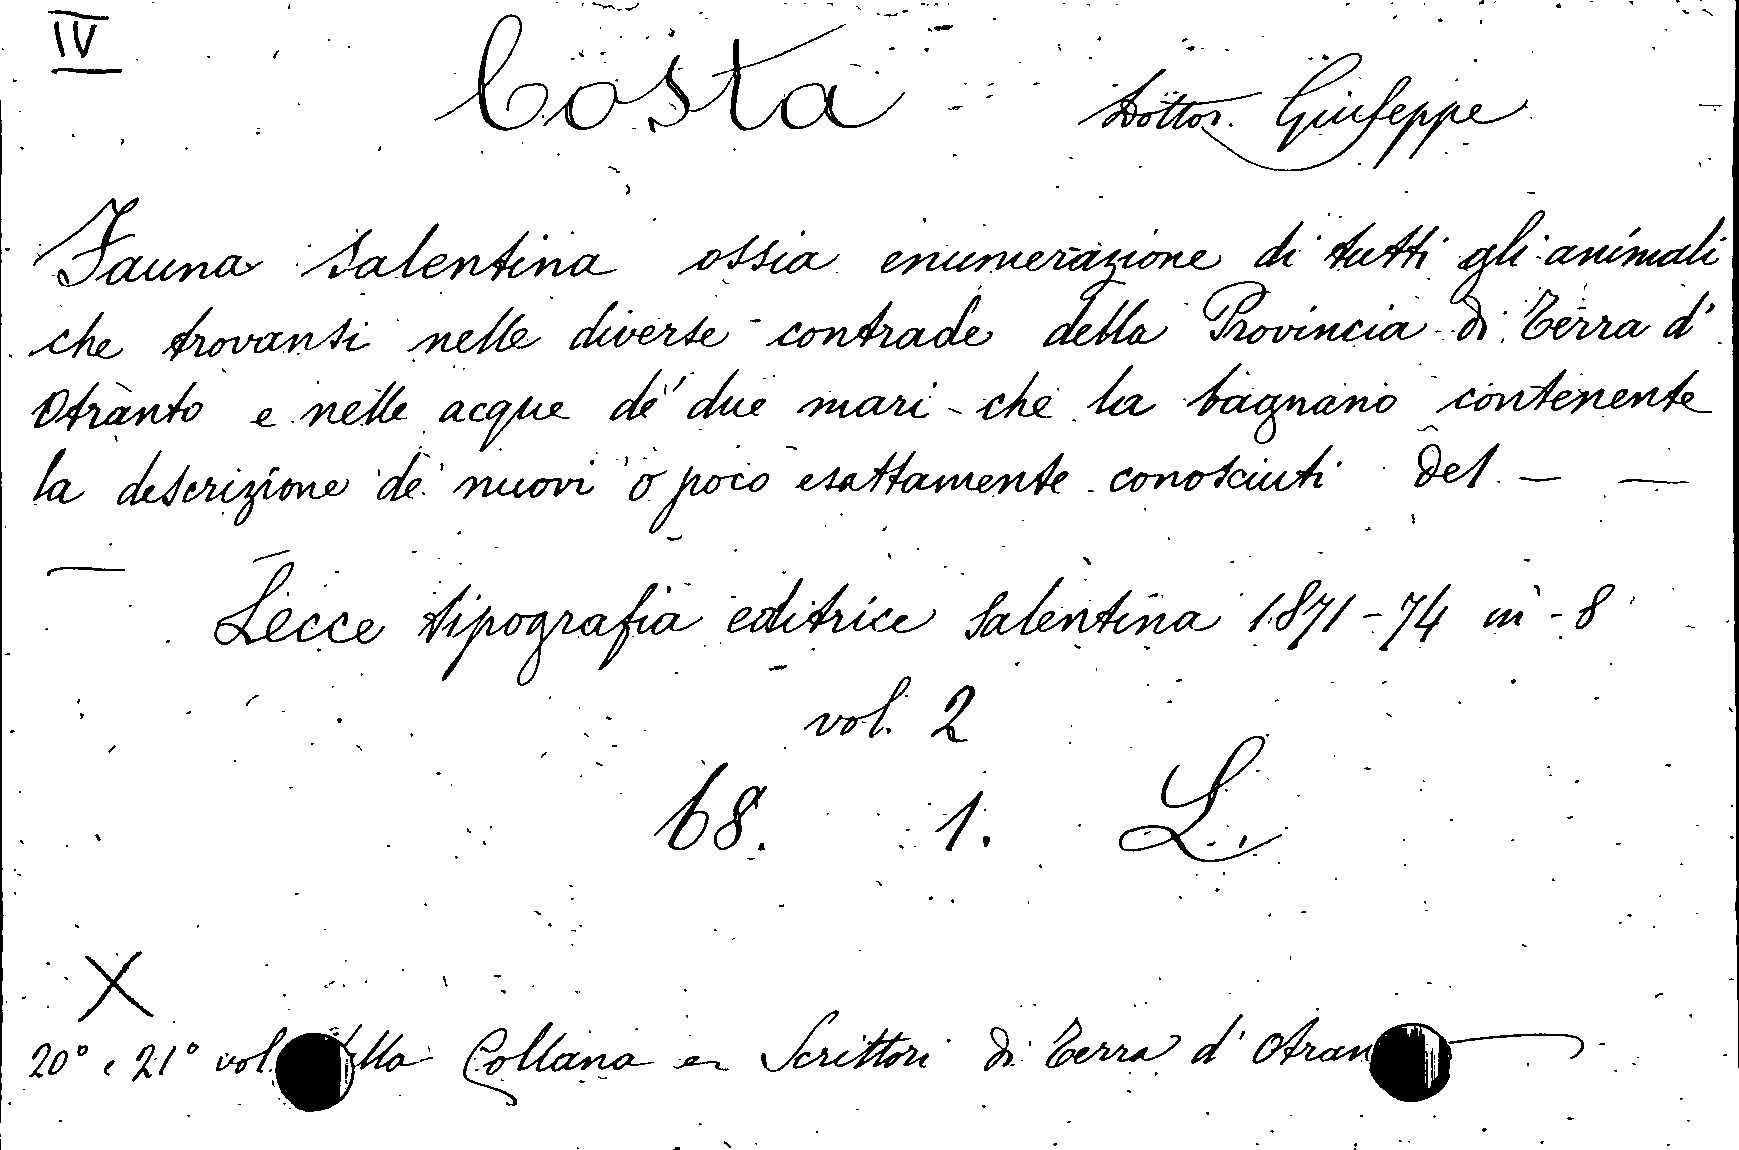 IV
Costa Dottor. Giuseppe
Fauna Salentina ossia enumerazione di tutti gli animali
che trovansi nelle diverse contrade della Provincia di Terra d'
Otranto e nelle acque de' due mari che la bagnano contenente
la descrizione de' nuovi o poco esattamente conosciuti del — —
—
Lecce tipografia editrice Salentina 1871-74 in-8
vol. 2
68. 1. L.
X
20° e 21° vol. della Collana Scrittori di Terra d' Otran